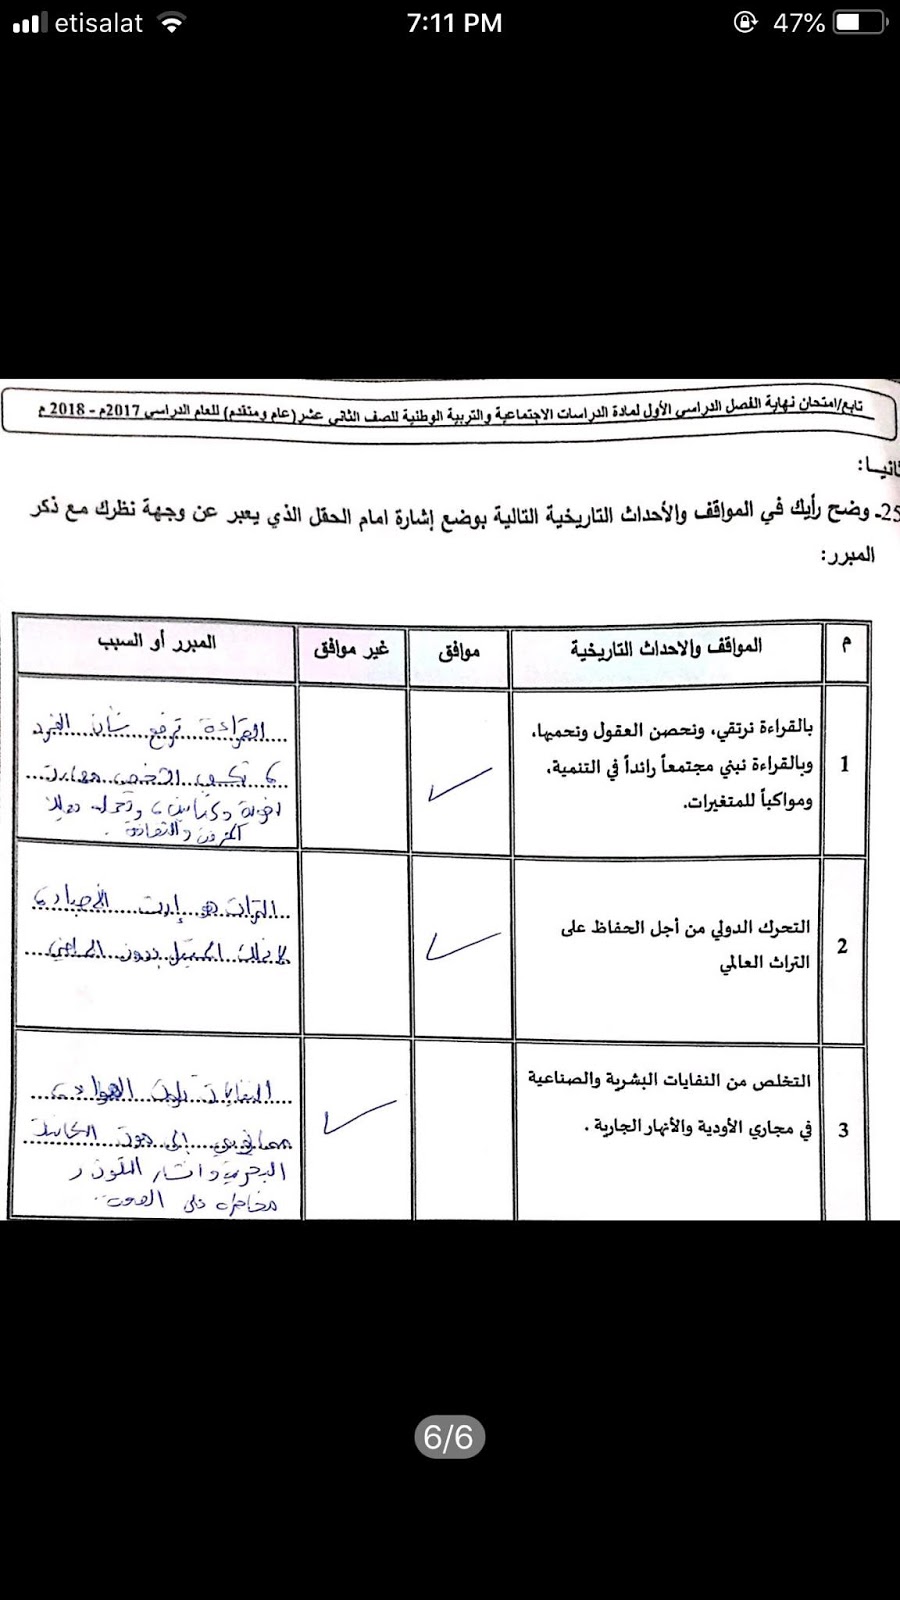 etisalat 7:11 PM 47%
تابع/امتحان نهاية الفصل الدراسي الأول لمادة الدراسات الاجتماعية والتربية الوطنية للصف الثاني عشر (عام ومتقدم) للعام الدراسي 2017م - 2018 م
ثانيا:
25- وضح رأيك في المواقف والأحداث التاريخية التالية بوضع إشارة امام الحقل الذي يعبر عن وجهة نظرك مع ذكر
المبرر:
م المواقف والاحداث التاريخية موافق غير موافق المبرر أو السبب
1
بالقراءة نرتقي، ونحصن العقول ونحميها،
وبالقراءة نبني مجتمعاً رائداً في التنمية،
ومواكباً للمتغيرات.
القراءة ترفع شأن الفرد
الشخص
والثقافة.
2
التحرك الدولي من أجل الحفاظ على
التراث العالمي
التراث هو إرث الأجداد
بدون الماضي
3
التخلص من النفايات البشرية والصناعية
في مجاري الأودية والأنهار الجارية .
النفايات تلوث الهواء
إلى موت
البحرية وانتشار التلوث و
على
6/6